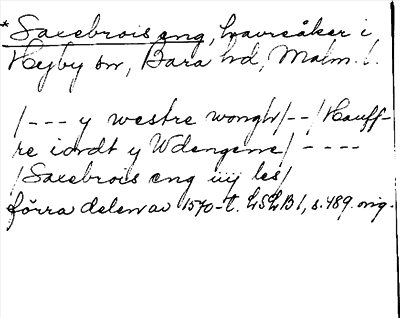 *Saxebrois eng, havreåker i
Hyby sn, Bara hd, Malm. l.
/--- y westre wongh/--/Hauff-
re iordt y Wdengerne/----
/Saxebrois eng iiij les/
förra delen av 1570-t. LSLB 1, s. 489. orig.